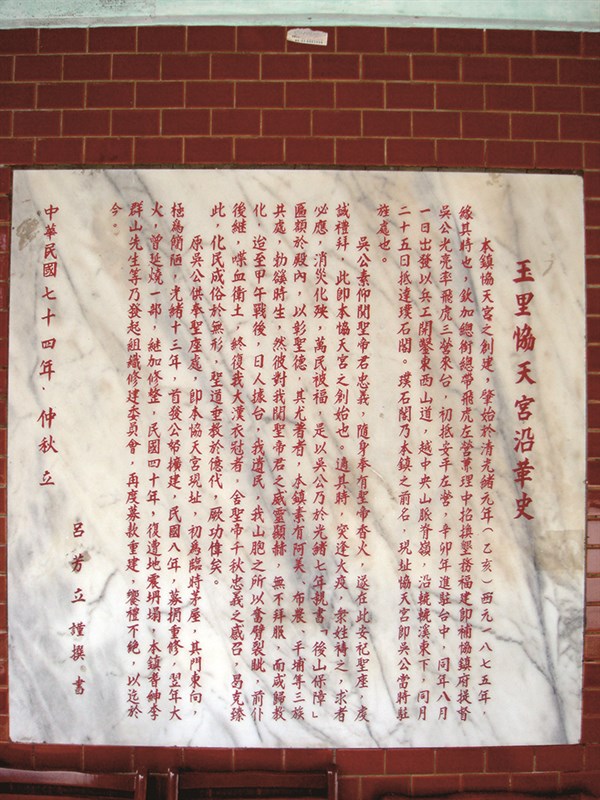 玉里協天宮沿革史
本鎮協天宮之創建,肇始於清光緒元年(乙亥)西元一八七五年,
緣其時也,欽加總銜總帶飛虎左營兼理中招撫墾務福建卽補協鎮府提督
吳公光亮率飛虎三營來台,初抵安平左營,辛卯年進駐台中,同年八月
一日出發以兵工開鑿東西山道,越中央山脈脊嶺,沿轆轆溪東下,同月
二十五日抵達璞石閣。璞石閣乃本鎮之前名,現址協天宮卽吳公當時駐
旌處也。
吳公素仰關聖帝君忠義,隨身奉有聖帝香火,遂在此安祀聖座,虔
誠禮拜,此卽本協天宮之創始也。適其時,突逢大疫,衆姓禱之,求者
必應,消災化殃,萬民被福,是以吳公乃於光緒七年親書「後山保障」
匾額於殿內,以彰聖德,其尤著者,本鎮素有阿美、布農、平埔等三族
共處,勃谿時生,然彼對我關聖帝君之威靈顯赫,無不拜服,而咸歸教
化,迨至甲午戰後,日人據台,我遺民,我山胞之所以奮臂裂眦,前仆
後繼,喋血衛土,終復我大漢衣冠者,舍聖帝千秋忠義之感召,曷克臻
此,化民成俗於無形,聖道垂教於億代,厥功偉矣。
原吳公供奉聖座處,卽本協天宮現址,初為臨時茅屋,其門東向,
極為簡陋,光緒十三年,首發公帑擴建,民國八年,募捐重修,翌年大
火,曾延燒一部,繼加修整,民國四十年,復遭地震坍塌,本鎮耆紳李
群山先生等乃發起組織修建委員會,再度募款重建,饗禮不絕,以迄於
今。
中華民國七十四年.仲秋立
呂芳立 謹撰書